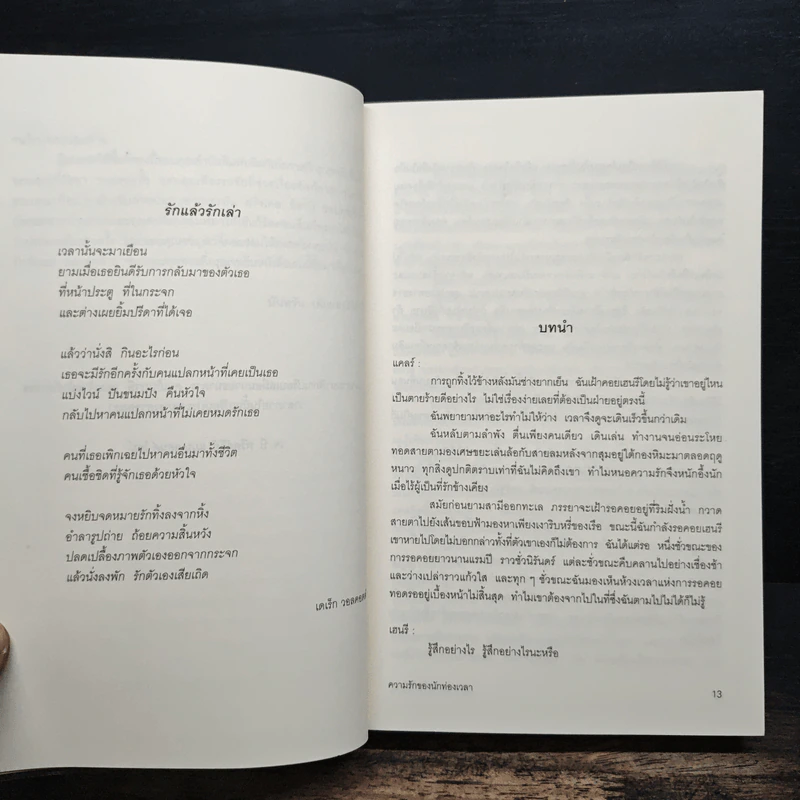 รักแล้วรักเล่า
เวลานั้นจะมาเยือน
ยามเมื่อเธอยินดีรับการกลับมาของตัวเธอ
ที่หน้าประตู ที่ในกระจก
และต่างเผยยิ้มปรีดาที่ได้เจอ
แล้วว่านั่งสิ กินอะไรก่อน
เธอจะมีรักอีกครั้งกับคนแปลกหน้าที่เคยเป็นเธอ
แบ่งไวน์ ปันขนมปัง คืนหัวใจ
กลับไปหาคนแปลกหน้าที่ไม่เคยหมดรักเธอ
คนที่เธอเพิกเฉยไปหาคนอื่นมาทั้งชีวิต
คนเชื้อชิดที่รู้จักเธอด้วยหัวใจ
จงหยิบจดหมายรักทิ้งลงจากหิ้ง
อำลารูปถ่าย ถ้อยความสิ้นหวัง
ปลดเปลื้องภาพตัวเองออกจากกระจก
แล้วนั่งลงพัก รักตัวเองเสียเถิด
เดเร็ก วอลคอตต์
บทนำ
แคลร์ :
การถูกทิ้งไว้ข้างหลังมันช่างยากเย็น ฉันเฝ้าคอยเฮนรีโดยไม่รู้ว่าเขาอยู่ไหน
เป็นตายร้ายดีอย่างไร ไม่ใช่เรื่องง่ายเลยที่ต้องเป็นฝ่ายอยู่ตรงนี้
ฉันพยายามหาอะไรทำไม่ให้ว่าง เวลาจึงดูจะเดินเร็วขึ้นกว่าเดิม
ฉันหลับตามลำพัง ตื่นเพียงคนเดียว เดินเล่น ทำงานจนอ่อนระโหย
ทอดสายตามองเศษขยะเล่นล้อกับสายลมหลังจากสุมอยู่ใต้กองหิมะมาตลอดฤดู
หนาว ทุกสิ่งดูปกติตราบเท่าที่ฉันไม่คิดถึงเขา ทำไมหนอความรักจึงหนักอึ้งนัก
เมื่อไร้ผู้เป็นที่รักข้างเคียง
สมัยก่อนยามสามีออกทะเล ภรรยาจะเฝ้ารอคอยอยู่ที่ริมฝั่งน้ำ กวาด
สายตาไปยังเส้นขอบฟ้ามองหาเพียงเงาริบหรี่ของเรือ ขณะนี้ฉันกำลังรอคอยเฮนรี
เขาหายไปโดยไม่บอกกล่าวทั้งที่ตัวเขาเองก็ไม่ต้องการ ฉันได้แต่รอ หนึ่งชั่วขณะของ
การรอคอยยาวนานแรมปี ราวชั่วนิรันดร์ แต่ละชั่วขณะคืบคลานไปอย่างเชื่องช้า
และว่างเปล่าราวแก้วใส และทุก ๆ ชั่วขณะฉันมองเห็นห้วงเวลาแห่งการรอคอย
ทอดรออยู่เบื้องหน้าไม่สิ้นสุด ทำไมเขาต้องจากไปในที่ซึ่งฉันตามไปไม่ได้ก็ไม่รู้
เฮนรี :
รู้สึกอย่างไร รู้สึกอย่างไรนะหรือ
ความรักของนักท่องเวลา
13